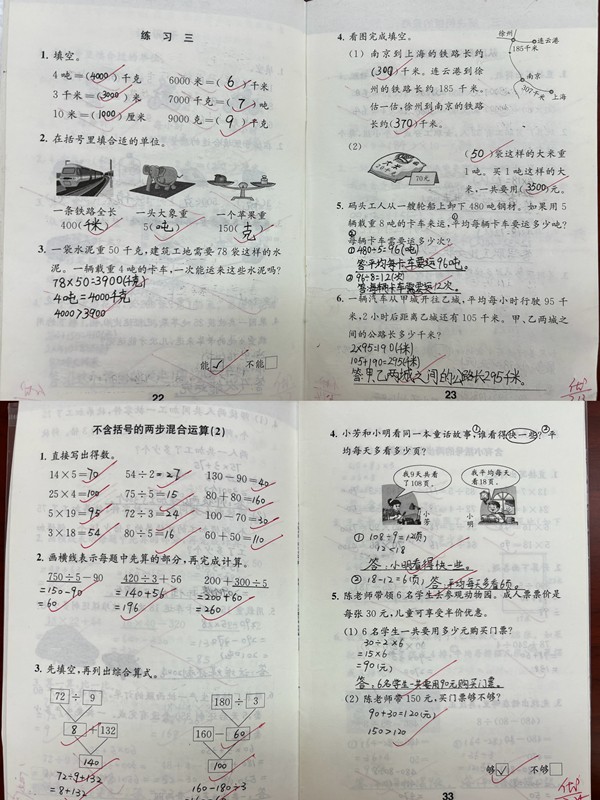 练习三
1. 填空。
4吨=(4000)千克 6000米=(6)千米
3千米=(3000)米 7000千克=(7)吨
10米=(1000)厘米 9000克=(9)千克
2. 在括号里填合适的单位。
一条铁路全长 一头大象重 一个苹果重
400(千米) 5(吨) 150(克)
3. 一袋水泥重50千克,建筑工地需要78袋这样的水
泥。一辆载重4吨的卡车,一次能运来这些水泥吗?
78×50=3900(千克)
4吨=4000千克
4000>3900
能☑ 不能☐
22
4. 看图完成填空。
(1) 南京到上海的铁路长约
(307)千米。连云港到徐
州的铁路长约185千米。
估一估,徐州到南京的铁路
长约(370)千米。
徐州
连云港
185千米
南京
307千米
上海
(2)
70元
(50)袋这样的大米重
1吨。买1吨这样的大
米,一共要用(3500)元。
5. 码头工人从一艘轮船上卸下480吨钢材。如果用5
辆载重8吨的卡车来运,①平均每辆卡车要运多少吨?
②每辆卡车需要运多少次?
①480÷5=96(吨)
答:平均每辆卡车要运96吨。
②96÷8=12(次)
答:每辆卡车需要运12次。
6. 一辆汽车从甲城开往乙城,平均每小时行驶95千
米,2小时后距离乙城还有105千米。甲、乙两城之间
的公路长多少千米?
2×95=190(千米)
105+190=295(千米)
答:甲、乙两城之间的公路长295千米。
23
不含括号的两步混合运算(2)
1. 直接写出得数。
14×5=70 54÷2=27 130-90=40
25×4=100 75÷5=15 80+80=160
5×19=95 72÷3=24 100-70=30
3×18=54 80÷5=16 60+50=110
2. 画横线表示每题中先算的部分,再完成计算。
750÷5-90 420÷3+56 200+300÷5
=150-90 =140+56 =200+60
=60 =196 =260
3. 先填空,再列出综合算式。
72÷9 180÷3
8+132 160-60
140 100
72÷9+132 160-180÷3
=8+132
4. 小芳和小明看同一本童话故事,①谁看得快一些?②平
均每天多看多少页?
我9天共看
了108页。
我平均每天
看18页。
小芳
小明
①108÷9=12(页)
12<18
答:小明看得快一些。
②18-12=6(页) 答:平均每天多看6页。
5. 陈老师带领6名学生去参观动物园。成人票票价是
每张30元,儿童可享受半价优惠。
(1) 6名学生一共要用多少元购买门票?
30÷2×6
=15×6
=90(元)
答:6名学生一共要用90元购买门票。
(2) 陈老师带150元,买门票够不够?
90+30=120(元)
150>120
够☑ 不够☐
33